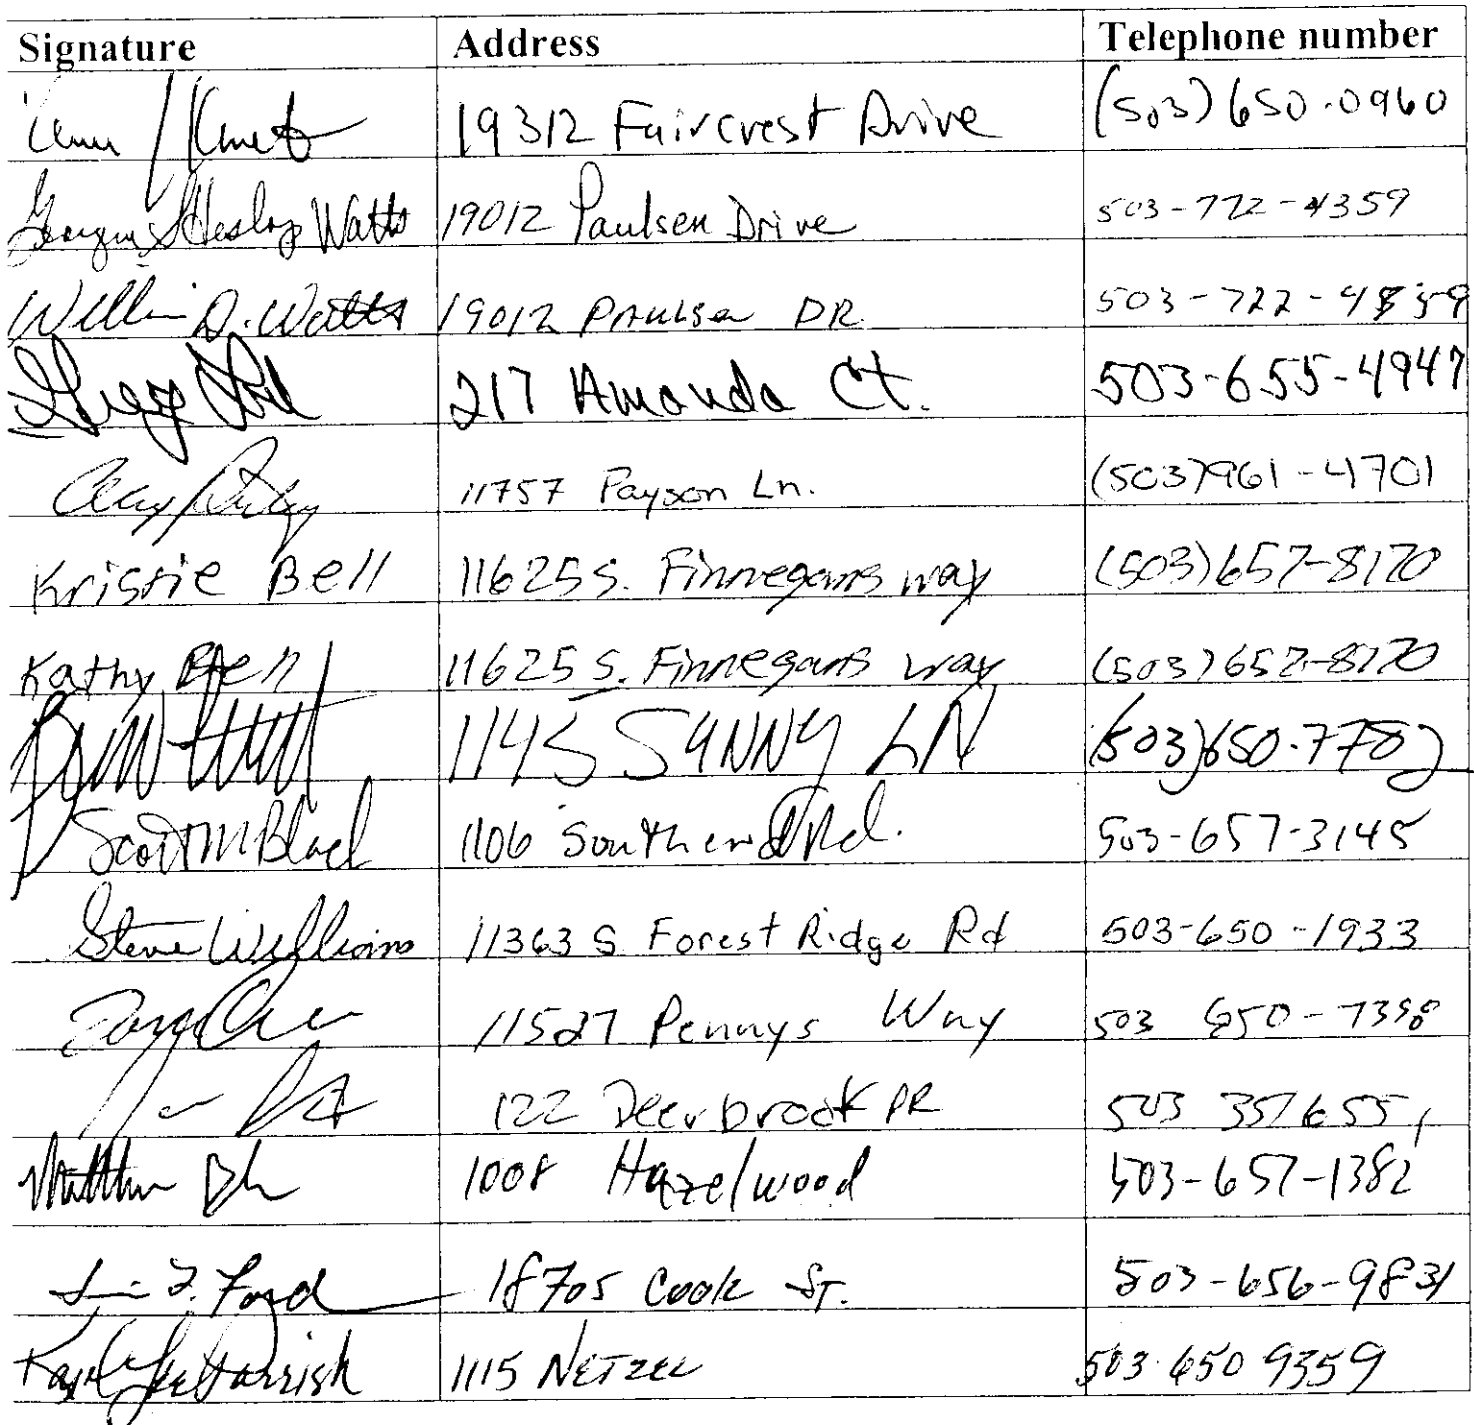 Signature Address Telephone number
19312 Faircrest Drive (503) 650-0960
Watts 19012 Paulsen Drive 503-722-4359
D. Watts 19012 Paulsen DR. 503-722-4359
217 Amanda Ct. 503-655-4947
11757 Payson Ln. (503)961-4701
Kristie Bell 11625 S. Finnegans way (503)657-8170
Kathy Bell 11625 S. Finnegans way (503)657-8170
1145 SUNNY LN (503)650-7782
Scott M Black 1106 South end Rd. 503-657-3145
Steve Williams 11363 S Forest Ridge Rd 503-650-1933
11527 Pennys Way 503 650-7398
122 Deerbrook DR 503 351 6551
Matthew 1008 Hazelwood 503-657-1382
Ford 18705 Cook ST. 503-656-9831
Parrish 1115 NETZEL 503-650 9359